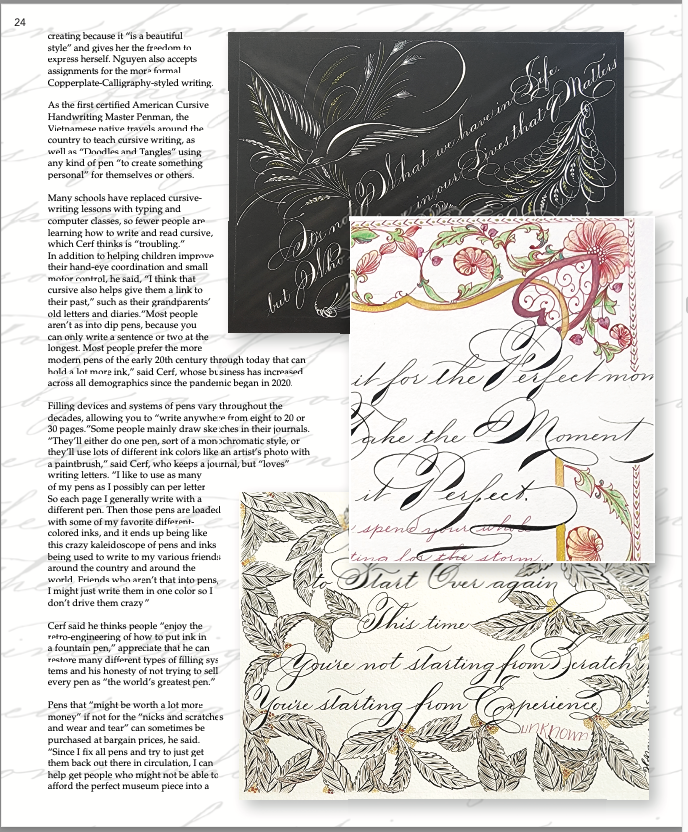 24
creating because it “is a beautiful
style” and gives her the freedom to
express herself. Nguyen also accepts
assignments for the more formal
Copperplate-Calligraphy-styled writing.
As the first certified American Cursive
Handwriting Master Penman, the
Vietnamese native travels around the
country to teach cursive writing, as
well as “Doodles and Tangles” using
any kind of pen “to create something
personal” for themselves or others.
Many schools have replaced cursive-
writing lessons with typing and
computer classes, so fewer people are
learning how to write and read cursive,
which Cerf thinks is “troubling.”
In addition to helping children improve
their hand-eye coordination and small
motor control, he said, “I think that
cursive also helps give them a link to
their past,” such as their grandparents’
old letters and diaries.“Most people
aren’t as into dip pens, because you
can only write a sentence or two at the
longest. Most people prefer the more
modern pens of the early 20th century through today that can
hold a lot more ink,” said Cerf, whose business has increased
across all demographics since the pandemic began in 2020.
Filling devices and systems of pens vary throughout the
decades, allowing you to “write anywhere from eight to 20 or
30 pages.”Some people mainly draw sketches in their journals.
“They’ll either do one pen, sort of a monochromatic style, or
they’ll use lots of different ink colors like an artist’s photo with
a paintbrush,” said Cerf, who keeps a journal, but “loves”
writing letters. “I like to use as many
of my pens as I possibly can per letter
So each page I generally write with a
different pen. Then those pens are loaded
with some of my favorite different-
colored inks, and it ends up being like
this crazy kaleidoscope of pens and inks
being used to write to my various friends
around the country and around the
world. Friends who aren’t that into pens,
I might just write them in one color so I
don’t drive them crazy”
Cerf said he thinks people “enjoy the
retro-engineering of how to put ink in
a fountain pen,” appreciate that he can
restore many different types of filling sys
tems and his honesty of not trying to sell
every pen as “the world’s greatest pen.”
Pens that “might be worth a lot more
money” if not for the “nicks and scratches
and wear and tear” can sometimes be
purchased at bargain prices, he said.
“Since I fix all pens and try to just get
them back out there in circulation, I can
help get people who might not be able to
afford the perfect museum piece into a
What we have in Life
in our Lives that Matters
but Who
it for the Perfect mom
ake the Moment
it Perfect.
spend your whole
ting for the storm.
to Start Over again
This time
You're not starting from Scratch,
You're starting from Experience
unknown